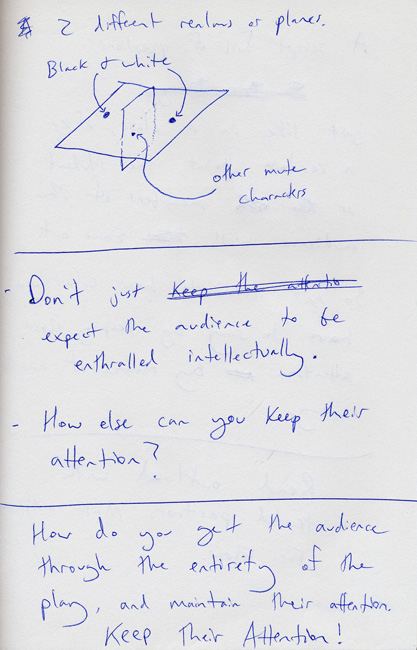 2 different realms or planes.
Black & white
other mute
characters
- Don't just Keep the attentio
expect the audience to be
enthralled intellectually.
- How else can you keep their
attention?
How do you get the audience
through the entirety of the
play, and maintain their attention.
Keep Their Attention!